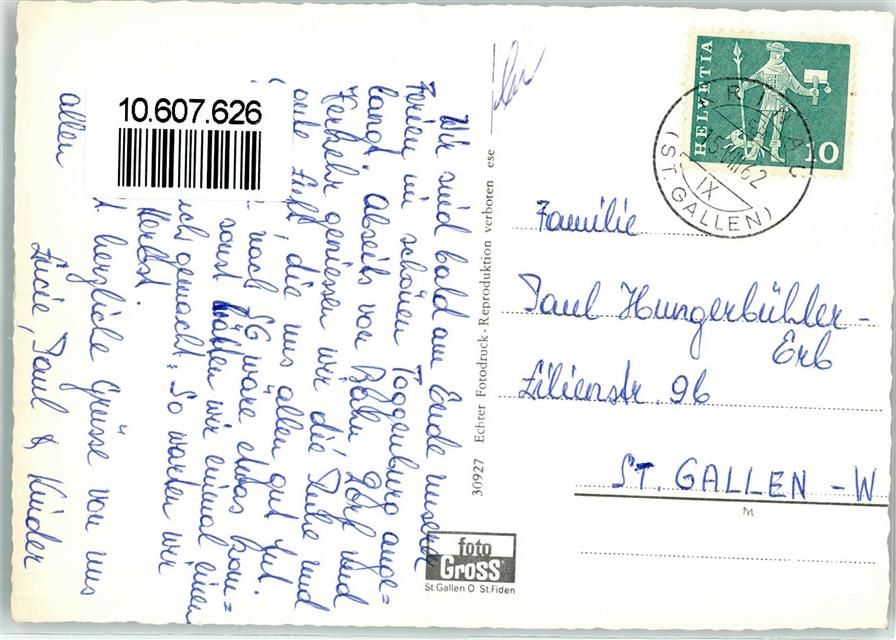 Wir sind bald am Ende unserer
Ferien im schönen Toggenburg ange=
langt. Abseits von Bahn Dorf und
Verkehr geniessen wir die Ruhe und
gute Luft, die uns allen gut tut.
nach SG wäre etwas kom=
sonst hätten wir einmal einen
gemacht. So warten wir
Herbst.
herzliche Grüsse von uns
allen
Lucie, Paul & Kinder
10.607.626
30927 Echter Fotodruck - Reproduktion verboten ese
foto
GROSS
St.Gallen O St.Fiden
HELVETIA
10
15.VIII.62
IX
(ST. GALLEN)
Familie
Paul Hungerbühler-
Erb
Lilienstr. 96
ST. GALLEN - W
M